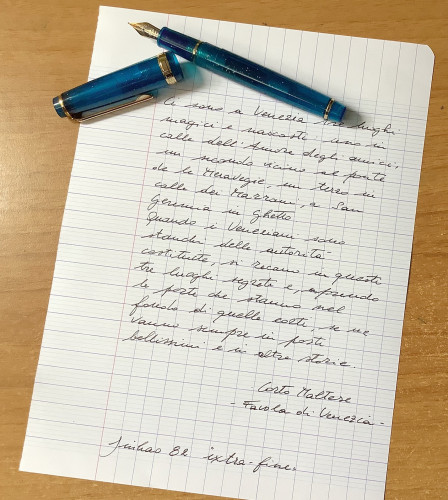 Ci sono a Venezia tre lughi
magici e nascosti: uno in
calle dell'Amore degli amici,
un secondo vicino al ponte
de le Meravegie, un terzo in
calle dei Marrani, a San
Geremia in Ghetto.
Quando i Veneziani sono
stanchi delle autorità
costituite, si recano in questi
tre luoghi segreti e, aprendo
le porte che stanno nel
fondo di quelle corti, se ne
vanno sempre in posti
bellissimi e in altre storie.
Corto Maltese
- Favola di Venezia -
Jinhao 82 extra-fine.